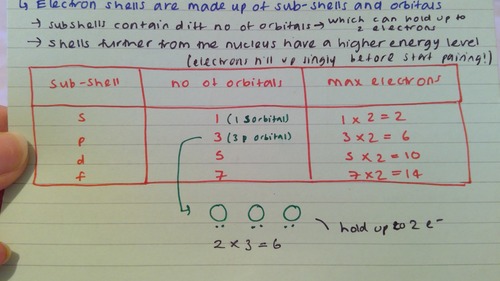 ↳ Electron shells are made up of sub-shells and orbitals
→ subshells contain diff no of orbitals → which can hold up to 2 electrons
→ shells further from the nucleus have a higher energy level
(electrons fill up singly before start pairing!)
sub-shell no of orbitals max electrons
s 1 (1 s orbital) 1 x 2 = 2
p 3 (3 p orbital) 3 x 2 = 6
d 5 5 x 2 = 10
f 7 7 x 2 = 14
hold up to 2 e-
2 x 3 = 6